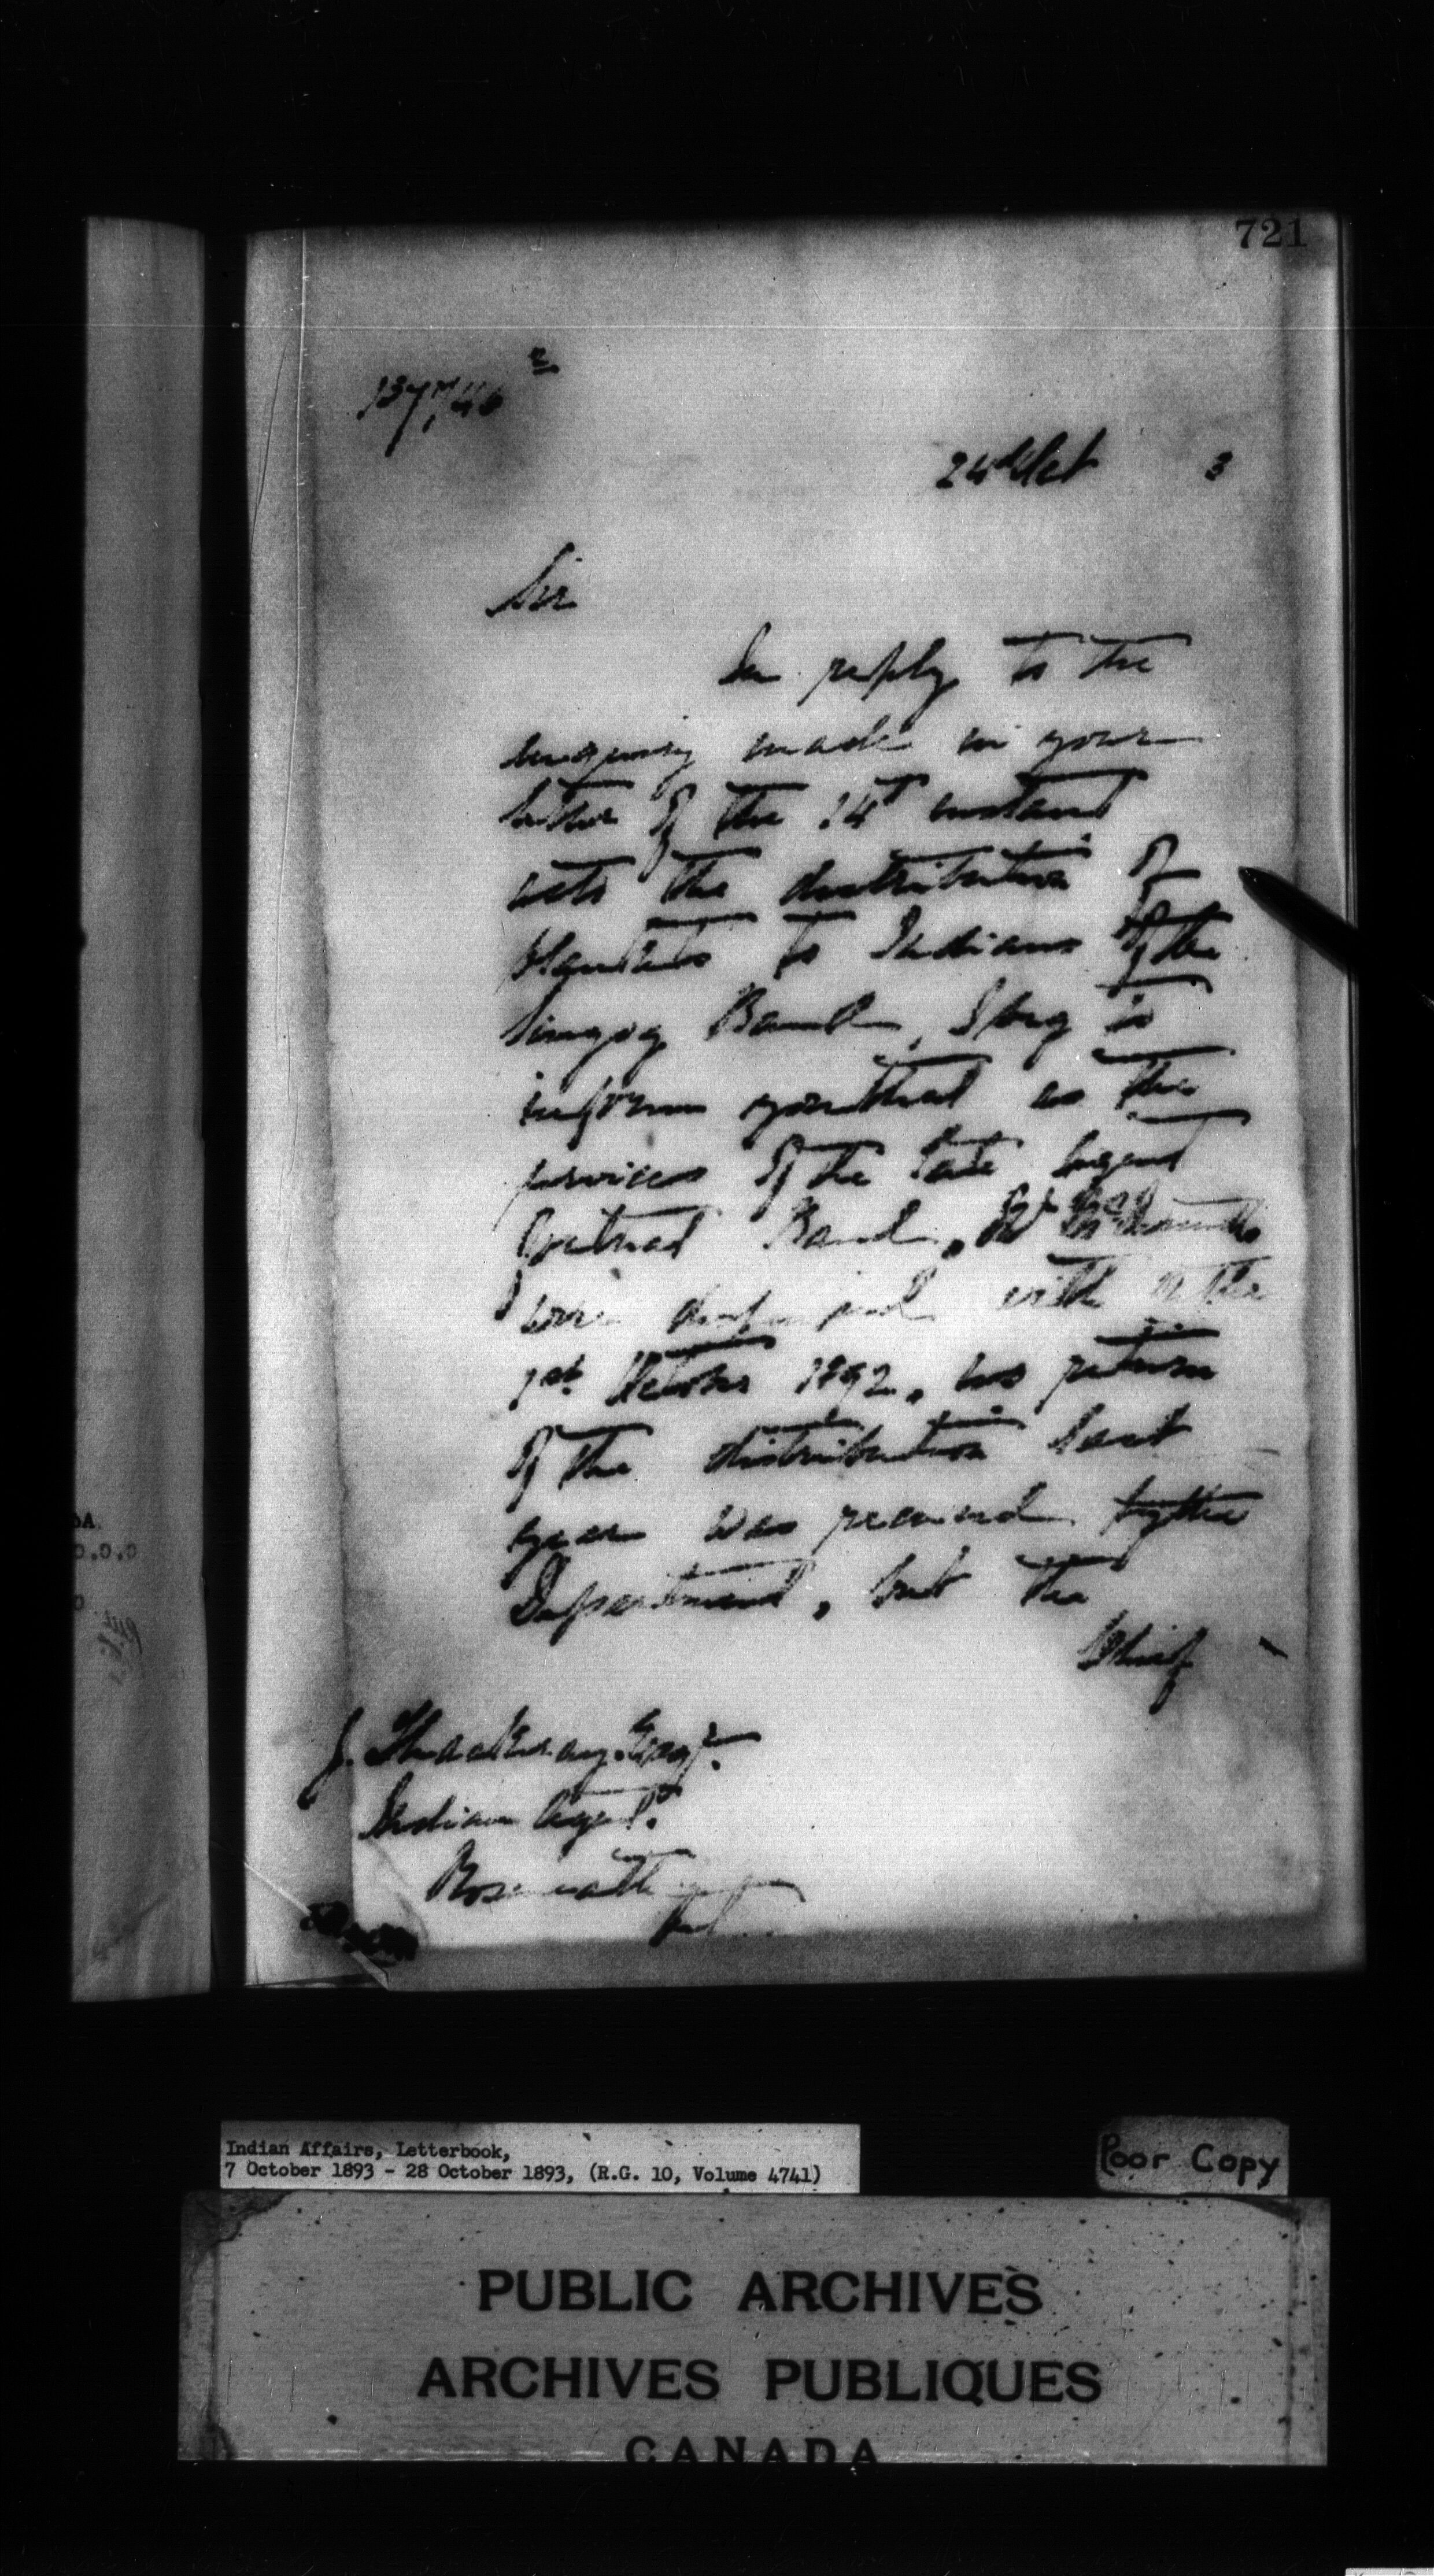 721
24th Oct 3
Sir
In reply to the
enquiry made in your
letter of the 14th instant
the distribution of
Blankets to Indians of the
Band, I beg to
inform you that as the
services of the late Agent
for that Band,
were with on the
1st October 1892, no return
of the distribution last
year was received by the
Department, but the
Chief
J. Thackeray Esqr.
Indian Agent.
Roseneath
Indian Affairs, Letterbook,
7 October 1893 - 28 October 1893, (R.G. 10, Volume 4741)
Poor Copy
PUBLIC ARCHIVES
ARCHIVES PUBLIQUES
CANADA